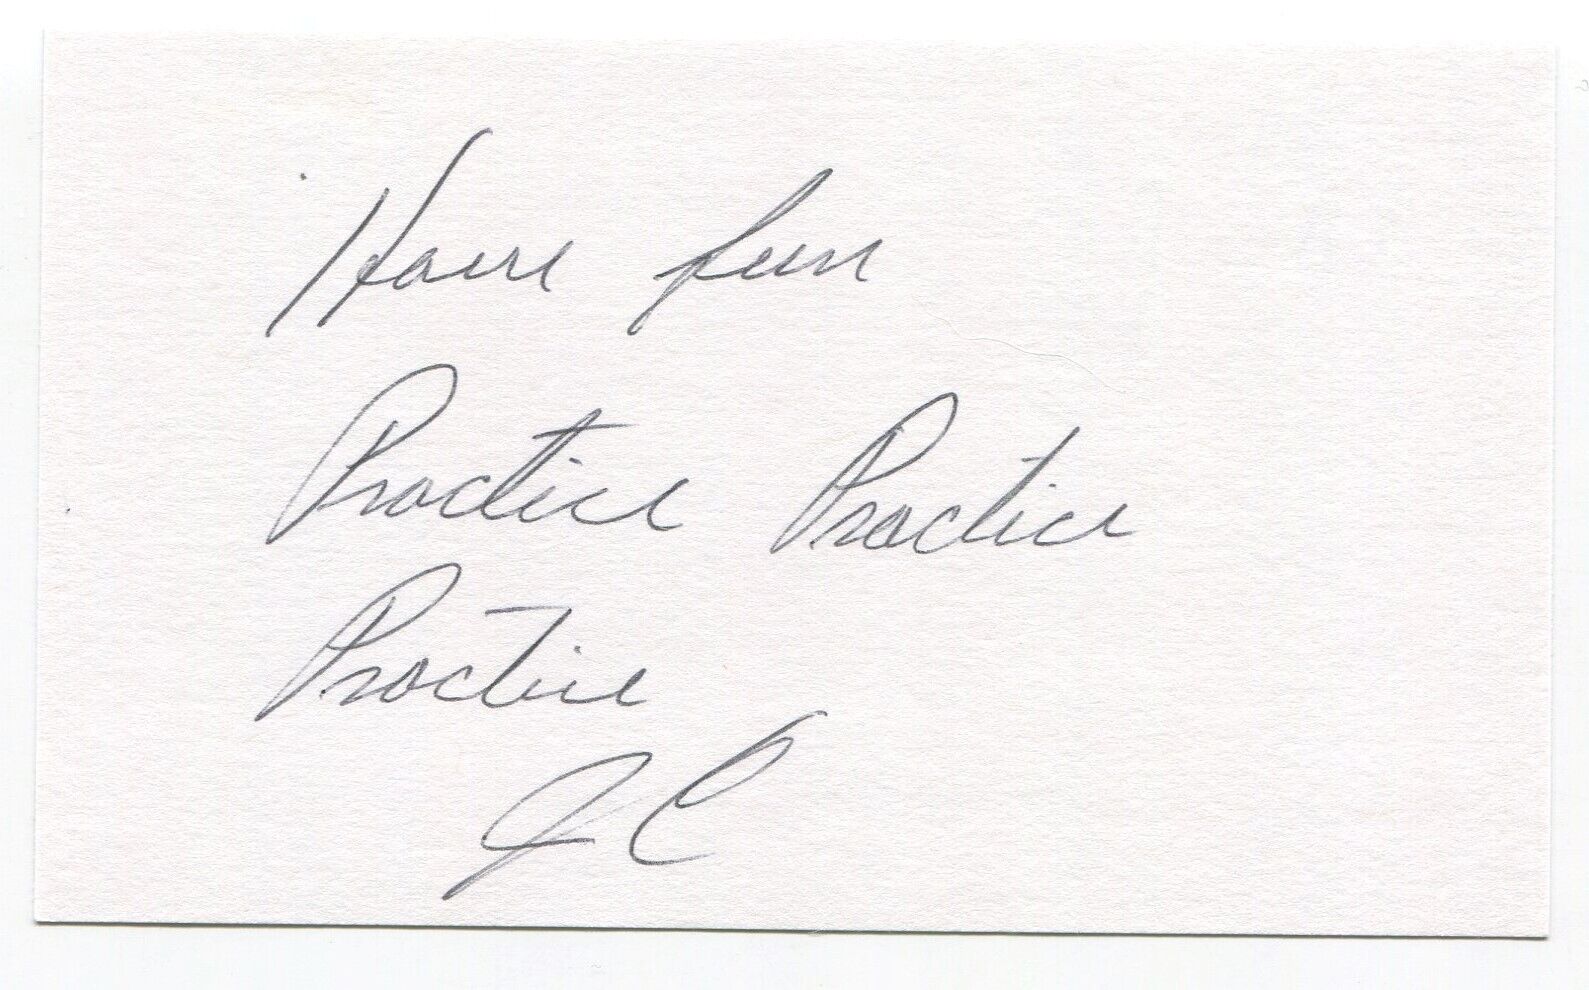 Have fun
Practice Practice
Practice
JC